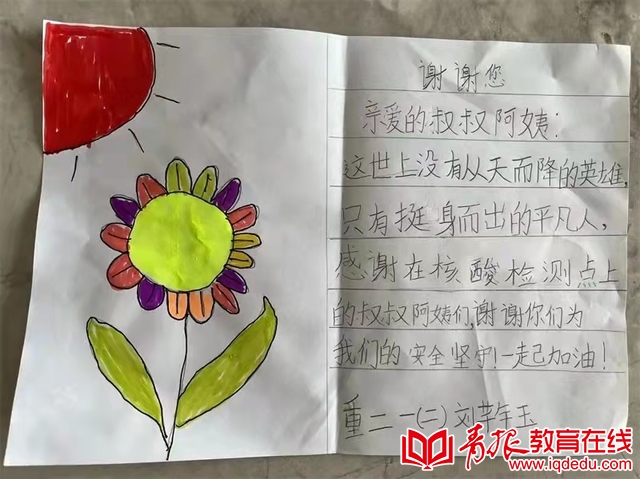 谢谢您
亲爱的叔叔阿姨:
这世上没有从天而降的英雄,
只有挺身而出的平凡人,
感谢在核酸检测点上
的叔叔阿姨们,谢谢你们为
我们的安全坚守!一起加油!
重二一(二) 刘芊玉
青报教育在线
www.iqdedu.com